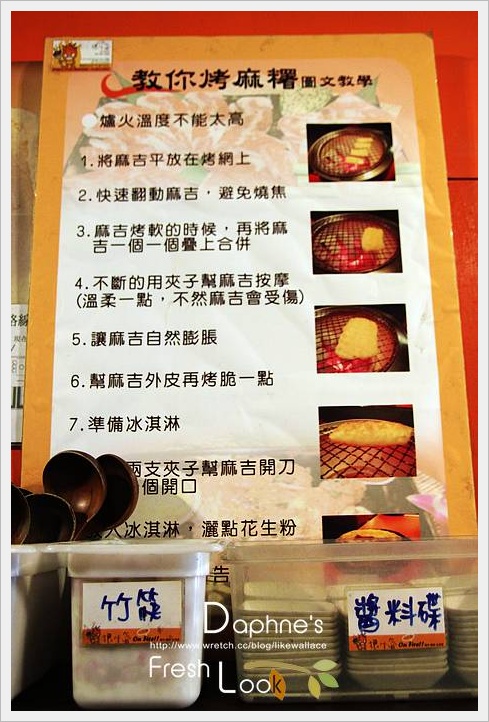 教你烤麻糬圖文教學
爐火溫度不能太高
1.將麻吉平放在烤網上
2.快速翻動麻吉，避免燒焦
3.麻吉烤軟的時候，再將麻
吉一個一個疊上合併
4.不斷的用夾子幫麻吉按摩
(溫柔一點，不然麻吉會受傷)
5.讓麻吉自然膨脹
6.幫麻吉外皮再烤脆一點
7.準備冰淇淋
兩支夾子幫麻吉開刀
個開口
入冰淇淋，灑點花生粉
告
竹筷
醬料碟
Daphne's
www.wretch.cc/blog/likewallace
Fresh Look